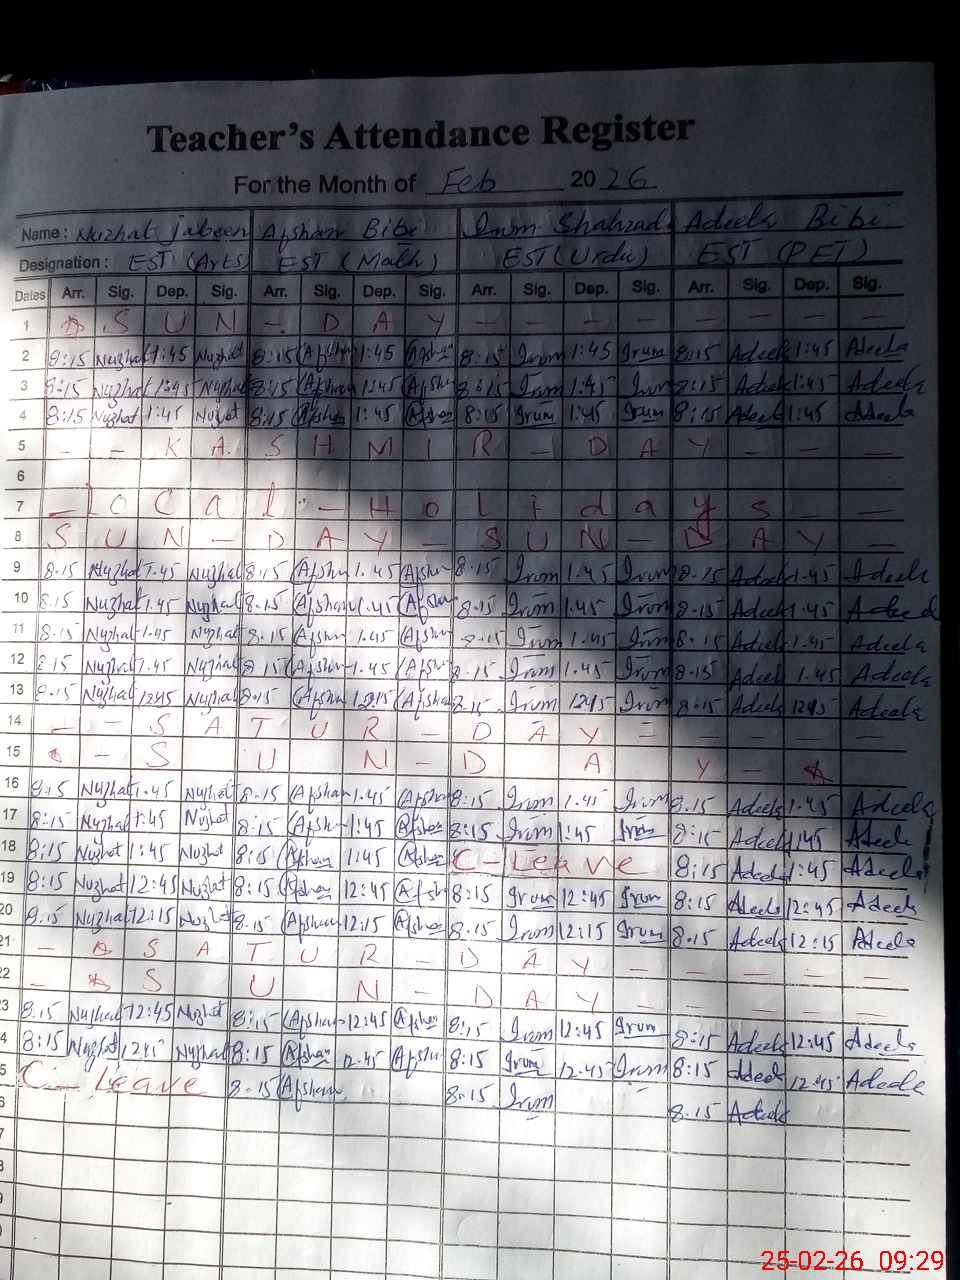 Teacher's Attendance Register
For the Month of Feb 2026
Name: Nuzhat jabeen Afshan Bibi Irum Shahzad Adeela Bibi
Designation: EST (Arts) EST (Math) EST (Urdu) EST (PET)
Dates Arr. Sig. Dep. Sig. Arr. Sig. Dep. Sig. Arr. Sig. Dep. Sig. Arr. Sig. Dep. Sig.
1 S U N - D A Y - - - - - - - -
2 8:15 Nuzhat 1:45 Nuzhat 8:15 Afshan 1:45 Afshan 8:15 Irum 1:45 Irum 8:15 Adeela 1:45 Adeela
3 8:15 Nuzhat 1:45 Nuzhat 8:15 Afshan 1:45 Afshan 8:15 Irum 1:45 Irum 8:15 Adeela 1:45 Adeela
4 8:15 Nuzhat 1:45 Nuzhat 8:15 Afshan 1:45 Afshan 8:15 Irum 1:45 Irum 8:15 Adeela 1:45 Adeela
5 - - K A S H M I R - D A Y - - -
6
7 - L o c a l - H o l i d a y s - -
8 S U N - D A Y - S U N - D A Y -
9 8.15 Nuzhat 1.45 Nuzhat 8.15 Afshan 1.45 Afshan 8.15 Irum 1.45 Irum 8.15 Adeela 1.45 Adeela
10 8.15 Nuzhat 1.45 Nuzhat 8.15 Afshan 1.45 Afshan 8.15 Irum 1.45 Irum 8.15 Adeela 1.45 Adeela
11 8.15 Nuzhat 1.45 Nuzhat 8.15 Afshan 1.45 Afshan 8.15 Irum 1.45 Irum 8.15 Adeela 1.45 Adeela
12 8.15 Nuzhat 1.45 Nuzhat 8.15 Afshan 1.45 Afshan 8.15 Irum 1.45 Irum 8.15 Adeela 1.45 Adeela
13 8.15 Nuzhat 12.45 Nuzhat 8.15 Afshan 12.45 Afshan 8.15 Irum 12.45 Irum 8.15 Adeela 12.45 Adeela
14 - - S A T U R - D A Y - - - - -
15 S U N - D A Y -
16 8.15 Nuzhat 1.45 Nuzhat 8.15 Afshan 1.45 Afshan 8:15 Irum 1.45 Irum 8.15 Adeela 1.45 Adeela
17 8:15 Nuzhat 1:45 Nuzhat 8:15 Afshan 1:45 Afshan 8:15 Irum 1:45 Irum 8:15 Adeela 1:45 Adeela
18 8:15 Nuzhat 1:45 Nuzhat 8:15 Afshan 1:45 Afshan C-Leave 8:15 Adeela 1:45 Adeela
19 8:15 Nuzhat 12:45 Nuzhat 8:15 Afshan 12:45 Afshan 8:15 Irum 12:45 Irum 8:15 Adeela 12:45 Adeela
20 8:15 Nuzhat 12:15 Nuzhat 8.15 Afshan 12:15 Afshan 8.15 Irum 12:15 Irum 8.15 Adeela 12:15 Adeela
21 - S A T U R - D A Y - - - - -
22 - S U N - D A Y - - - - -
23 8.15 Nuzhat 12:45 Nuzhat 8:15 Afshan 12:45 Afshan 8:15 Irum 12:45 Irum 8:15 Adeela 12:45 Adeela
4 8:15 Nuzhat 12.45 Nuzhat 8:15 Afshan 12.45 Afshan 8:15 Irum 12.45 Irum 8:15 Adeela 12.45 Adeela
5 C-Leave 8.15 Afshan 8.15 Irum 8.15 Adeela
6
7
8
9
25-02-26 09:29